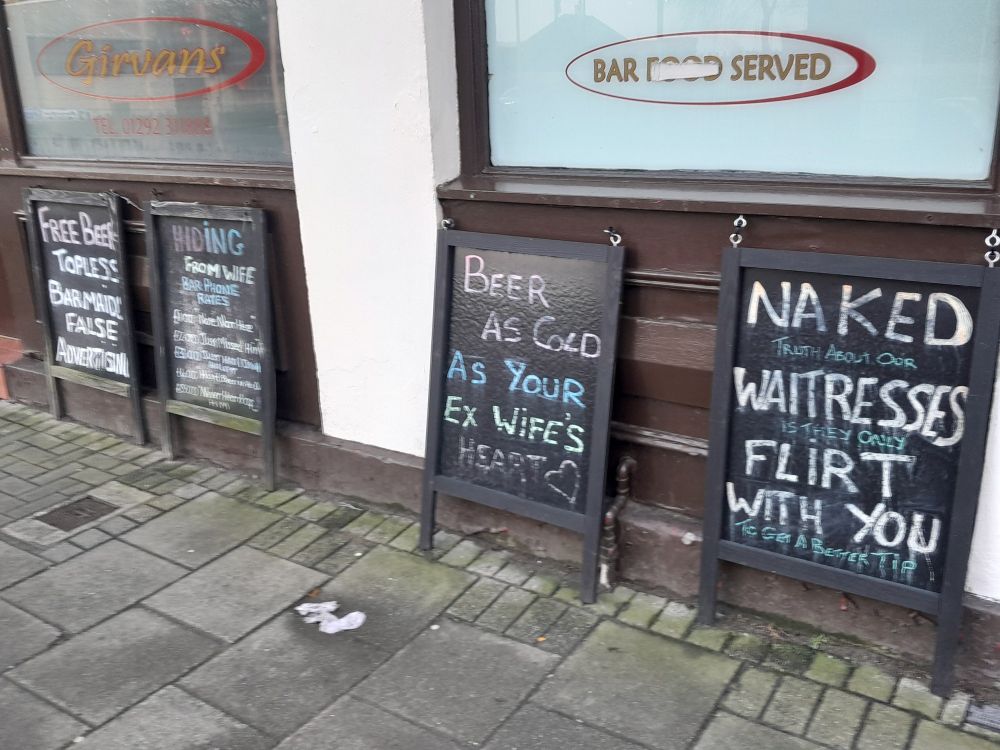 Girvans
TEL. 01292
BAR FOOD SERVED
FREE BEER
TOPLESS
BARMAIDS
FALSE
ADVERTISING
HIDING
FROM WIFE
BAR PHONE
RATES
BEER
AS COLD
AS YOUR
EX WIFE'S
HEART
NAKED
TRUTH ABOUT OUR
WAITRESSES
IS THEY ONLY
FLIRT
WITH YOU
TO GET A BETTER TIP